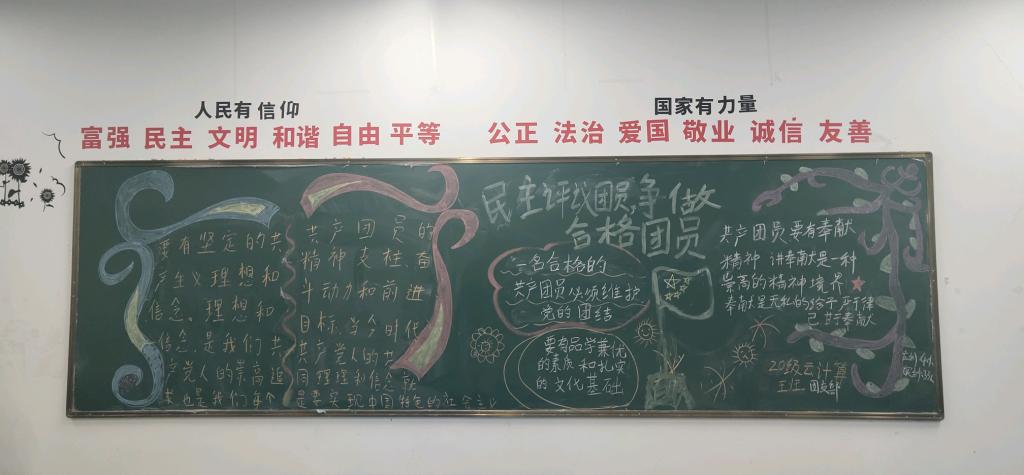 人民有信仰
国家有力量
富强 民主 文明 和谐 自由 平等
公正 法治 爱国 敬业 诚信 友善
要有坚定的共
产主义理想和
信念。理想和
信念,是我们共
产党人的崇高追
求也是我们每个
共产团员的
精神支柱、奋
斗动力和前进
目标,当今时代
共产党人的共
同理想和信念就
是要实现中国特色的社会主义
民主评议团员,争做
合格团员
一名合格的
共产团员必须维护
党的团结
要有品学兼优
的素质和扎实
的文化基础
共产团员要有奉献
精神 讲奉献是一种
崇高的精神境界
奉献是无私的给予严于律
己甘于奉献
20级云计算
王班 团支部